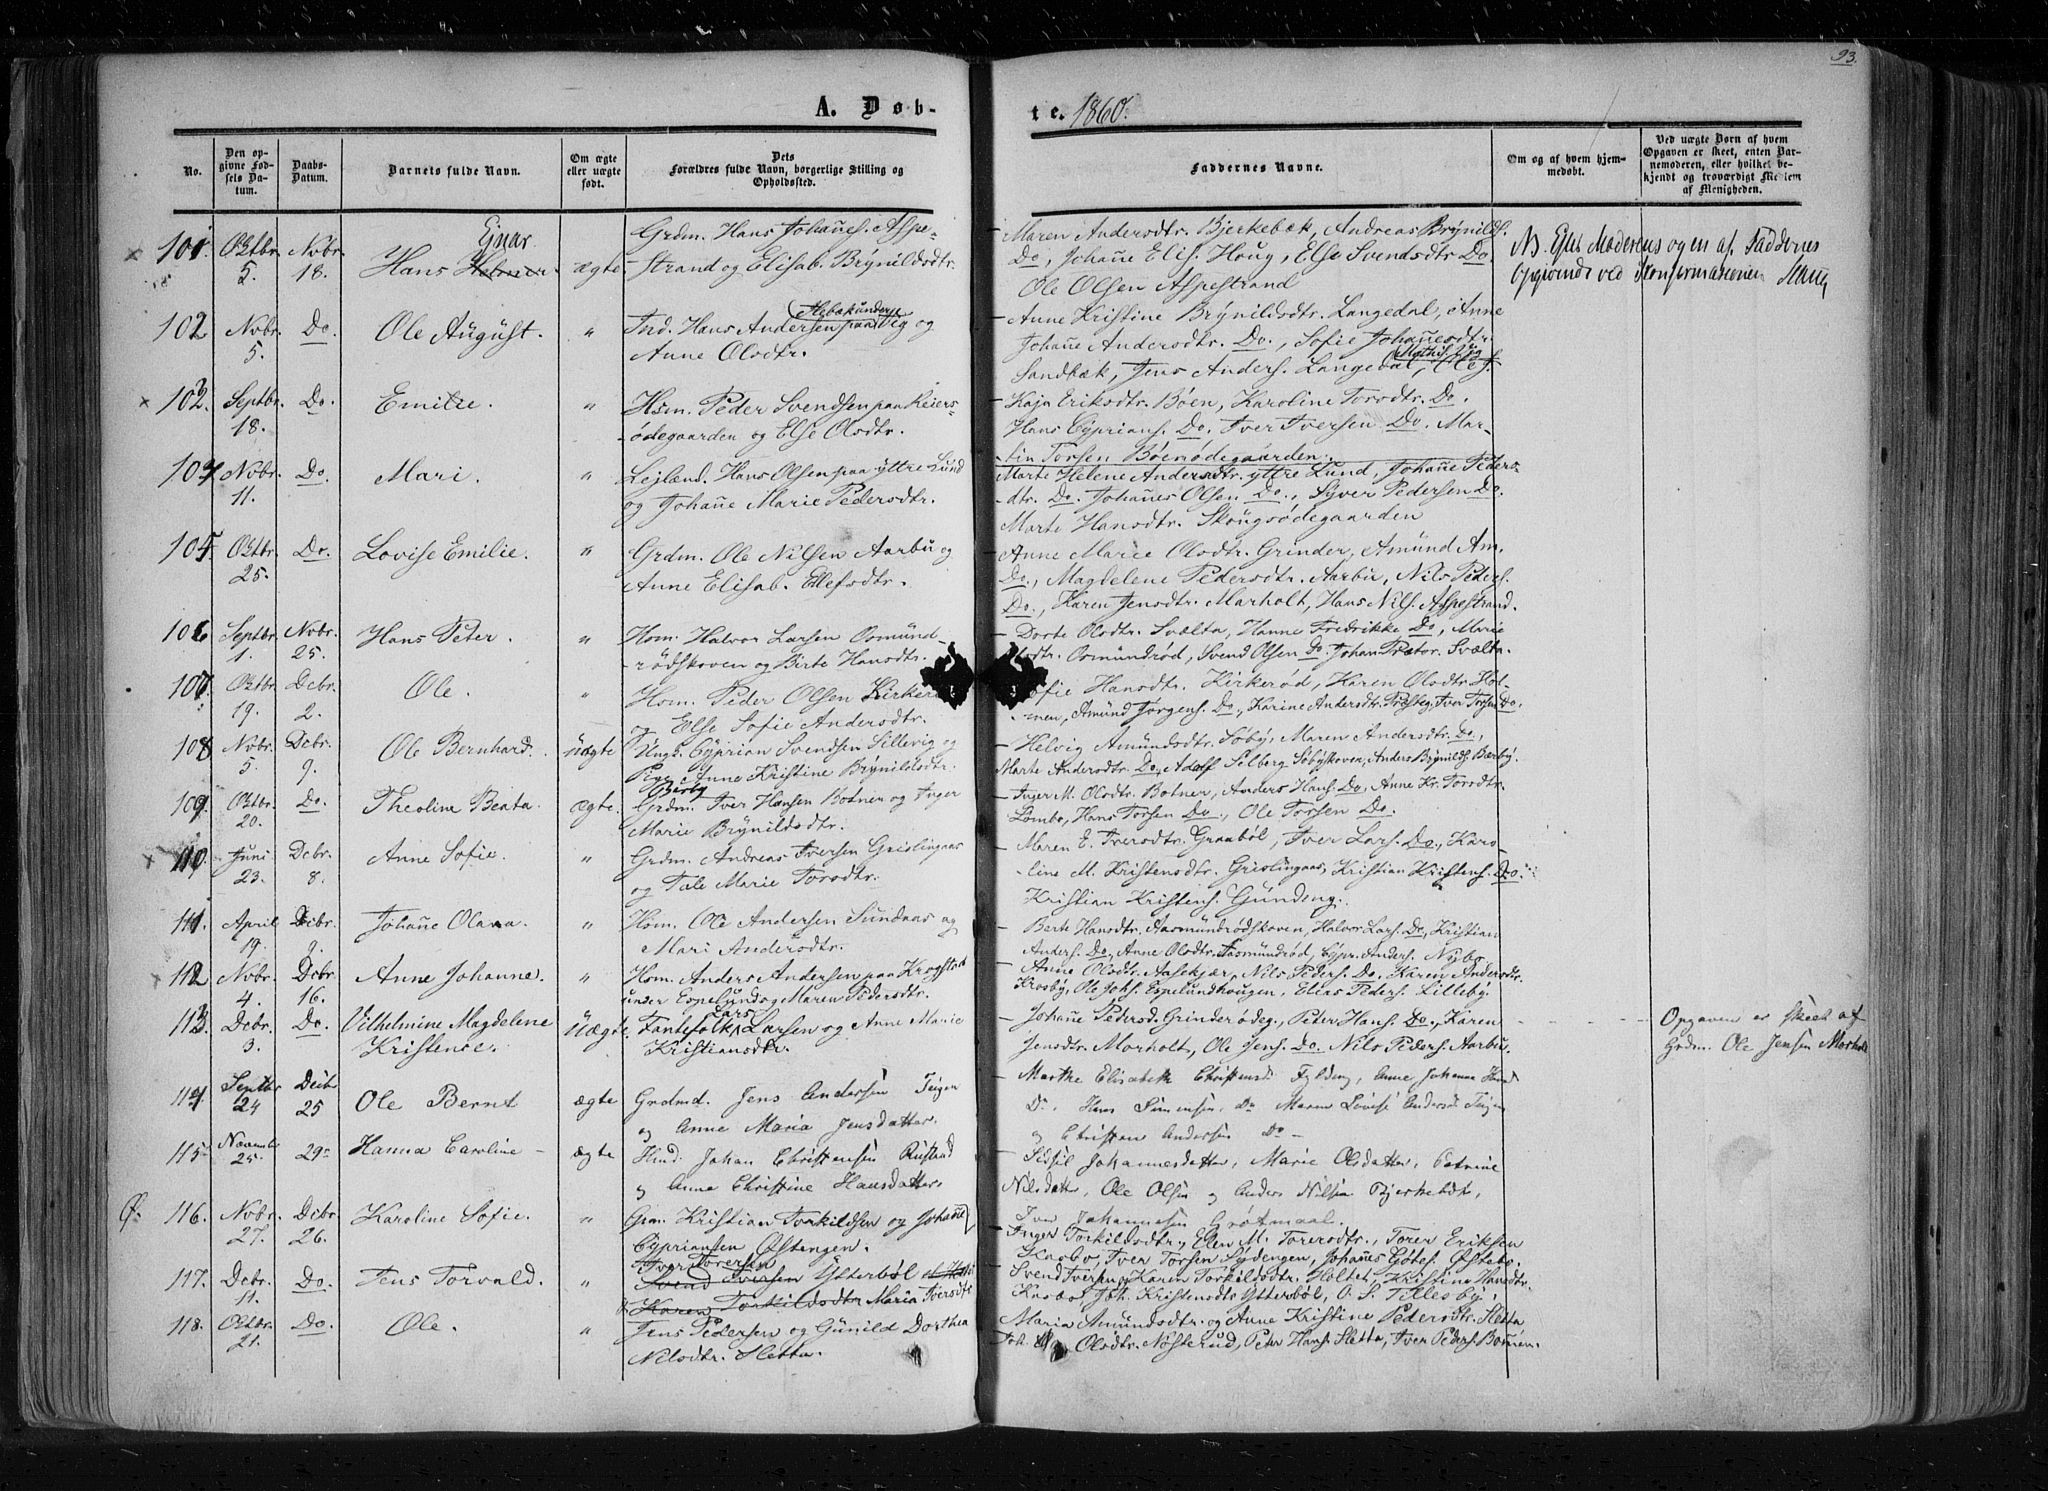 93.
A. Døb-
te. 1860.
No.
Den op-
givne Fød-
sels Da-
tum.
Daabs-
Datum.
Barnets fulde Navn.
Om ægte
eller uægte
født.
Dets
Forældres fulde Navn, borgerlige Stilling og
Opholdssted.
Faddernes Navne.
Om og af hvem hjem-
medøbt.
Ved uægte Børn af hvem
Opgaven er skeet, enten Bar-
nemoderen, eller hvilket be-
kjendt og troværdigt Medlem
af Menigheden.
101. Oktbr. 5. Novbr. 18. Hans Ejnar ægte
Grdm. Hans Johañes. Aspe-
strand og Elisab. Brynildsdtr.
Maren Andersdtr. Bjerkebæk, Andreas Brynilds.
Do, Johañe Elis. Houg, Else Svendsdtr. Do.
Ole Olsen Aspestrand
NB. Efter Moderens og en af Faddernes
Opgivende ved Konfirmationen
102 Nvbr. 5. Do. Ole August. "
Ind. Hans Andersen paa Vig og
Anne Olsdtr.
Anne Kristine Brynildsdtr. Langedal, Anne
Johañe Andersdtr. Do., Sofie Johañesdtr.
Sandbæk, Jens Anders. Langedal,
103. Septbr. 18. Do. Emilie. "
Hsm. Peder Svendsen paa Reiers-
ødegaarden og Else Olsdtr.
Kaja Eriksdtr. Böen, Karoline Torsdtr. Do.
Hans Cyprians. Do. Iver Iversen Do. Mar-
tin Torsen Böenødegaarden.
104 Nvbr. 11. Do Mari. "
Lejlænd. Hans Olsen paa yttre Lund
og Johañe Marie Pedersdtr.
Marte Helene Andersdtr. yttre Lund, Johañe Peders-
dtr. Do. Johañes Olsen Do., Syver Pedersen Do.
Marte Hansdtr. Skougsødegaarden
105 Oktbr. 25. Do. Lovise Emilie. "
Grdm. Ole Nilsen Aarbu og
Anne Elisab. Ellefsdtr.
Anne Marie Olsdtr. Grinder, Amund Am.
Do., Magdelene Pedersdtr. Aarbu, Nils Peders.
Do., Karen Jensdtr. Marholt, Hans Nils. Aspestrand.
106 Septbr. 1. Nvbr. 25. Hans Peter. "
Hsm. Halvor Larsen Osmund-
rødskoven og Birte Hansdtr.
Dorte Olsdtr. Svælta, Hanne Fredrikke Do, Marie
Olsdtr. Osmundrød, Svend Olsen Do. Johan Prætor. Svælta.
107. Oktbr. 19. Dcbr. 2. Ole "
Hsm. Peder Olsen Kirkerød
og Else Sofie Andersdtr.
Sofie Hansdtr. Kirkerød, Karen Olsdtr. Hol-
men, Amund Jørgens. Do., Karine Andersdtr. Presteg, Iver Torsen Do.
108 Nvbr. 5. Dcbr. 9. Ole Bernhard. uægte
Ungk. Cyprian Svendsen Lillevig og
Pige Anne Kristine Brynildsdtr.
Bærby
Helvig Amundsdtr. Søby, Maren Andersdtr. Do.,
Marte Andersdtr. Do, Adolf Solberg Søbyskoven, Anders Brynilds. Bærby.
109. Oktbr. 20. Do. Theoline Beata. ægte.
Grdm. Iver Hansen Botner og Inger
Marie Brynildsdtr.
Inger M. Olsdtr. Botner, Anders Hans. Do, Anne Kr. Torsdtr.
Lombo, Hans Torsen Do., Ole Torsen Do.
110. Juni 23. Dcbr. 8. Anne Sofie. "
Grdm. Andreas Iversen Grislingaas
og Tale Marie Torsdtr.
Maren E. Iversdtr. Graabøl, Iver Lars. Do., Karo-
line M. Kristensdtr. Grislingaas, Kristian Kristens. Do.
Kristian Kristens. Gundeng.
111. April 19. Dcbr. 9. Johañe Olava "
Hsm. Ole Andersen Sundaas og
Mari Andersdtr.
Berte Hansdtr. Aasmundrødskoven, Halvor Lars. Do, Kristian
Anders. Do, Anne Olsdtr. Aasmundrød, Cypr. Anders. Nybo
112 Nvbr. 4. Dcbr. 16. Anne Johanne. "
Hsm. Anders Andersen paa Krogstad
under Espelund og Maren Pedersdtr.
Anne Olsdtr. Aasekjær, Nils Peders. Do. Karen Andersdtr.
Krosby, Ole Johs. Espelundhougen, Elias Peders. Lilleby.
113. Dcbr. 3. Do Vilhelmine Magdelene
Kristence. Uægte
Fantefolk Lars Larsen og Anne Marie
Kristiansdtr.
Johañe Pedersd. Grinderødeg., Peter Hans. Do., Karen
Jensdtr. Morholt, Ole Jens. Do. Nils Peders. Aarbu.
Opgaven er skeet af
Grdm. Ole Jensen Morholt
114. Septbr 24 Decbr 25 Ole Bernt ægte
Grdmd. Jens Andersen Teigen
og Anne Maria Jensdatter.
Marthe Elisabeth Christensd. Fylding, Anne Johanna
Do. Hans Simensen, Do Maren Lovise Andersd. Teigen
og Christian Andersen Do -
115 Novembr 25. 29 Hanna Caroline ægte
Hmd. Johan Christensen Rustand
og Anna Christine Hansdatter
Sidsil Johannesdatter, Marie Olsdatter, Petrine
Nilsdatter, Ole Olsen og Anders Nilsen Bjerketvedt,
Iver Johannesen Grøtmaal.
Ø. 116. Nvbr. 27. Dcbr. 26. Karoline Sofie. "
Grm. Kristian Torkildsen og Johañe
Cypriansen Østengen.
Inger Torkildsdtr., Elen M. Torersdtr., Torer Eriksen
Kasbo, Iver Torsen Sydengen, Johañes Gøtes. Østebo.
117. Dcbr. 11. Do. Jens Torvald. "
Iver Torersen
Svend Iversen Ytterbøl
Karen Torkildsdtr Maria Iversdtr
Svend Iversen, Karen Torkildsdtr. Holtet, Kristine Hansdtr.
Kasbo, Joh. Kristensdtr. Ytterbøl, O. S. Tillesby.
118. Oktbr. 21. Do. Ole. "
Jens Pedersen og Gunild Dorthea
Nilsdtr. Sletta.
Maria Amundsdtr. og Anne Kristine Pedersdtr. Sletta
Joh. Olsdtr. Nøsterud, Peter Hans. Sletta, Iver Peders. Botnen.